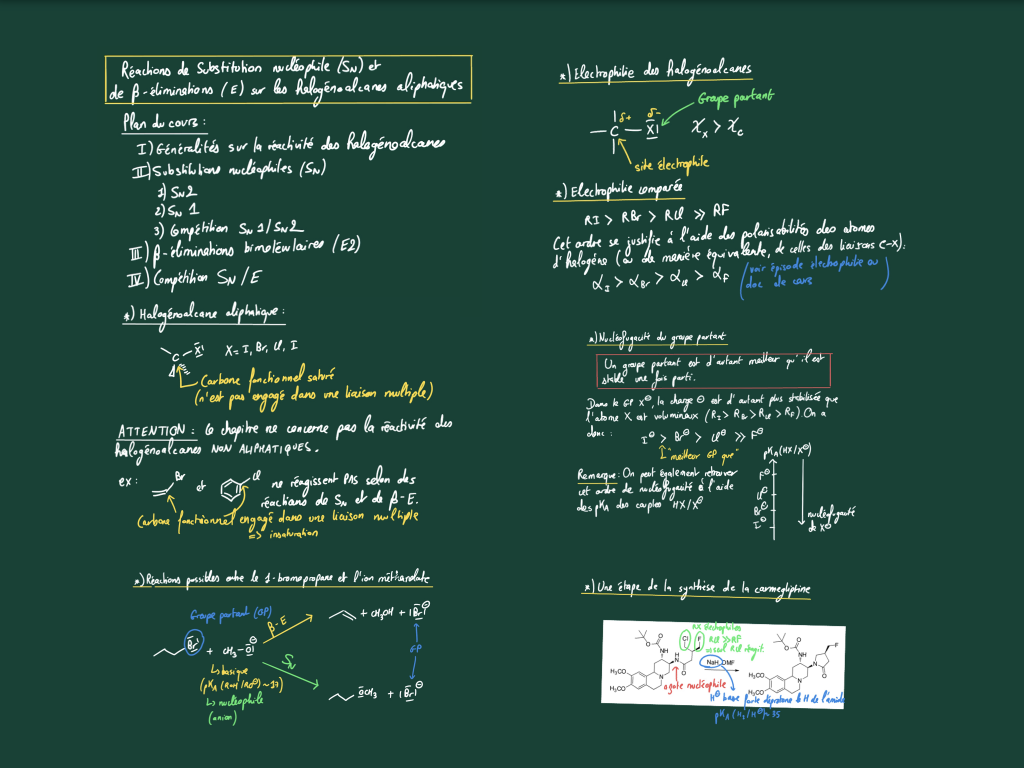 Réactions de Substitution nucléophile (SN) et
de β-éliminations (E) sur les halogénoalcanes aliphatiques
Plan du cours :
I) Généralités sur la réactivité des halogénoalcanes
II) Substitutions nucléophiles (SN)
1) SN2
2) SN1
3) Compétition SN1/SN2
III) β-éliminations bimoléculaires (E2)
IV) Compétition SN/E
*) Halogénoalcane aliphatique :
C X X = I, Br, Cl, I
Carbone fonctionnel saturé
(n'est pas engagé dans une liaison multiple)
ATTENTION : Ce chapitre ne concerne pas la réactivité des
halogénoalcanes NON ALIPHATIQUES.
ex : Br et Cl ne réagissent PAS selon des
réactions de SN et de β-E.
Carbone fonctionnel engagé dans une liaison multiple
=> insaturation
*) Réactions possibles entre le 1-bromopropane et l'ion méthanolate
Groupe partant (GP)
Br + CH3-O⊖
β-E
+ CH3OH + Br⊖
GP
SN
OCH3 + Br⊖
↳ basique
(pKA (ROH/RO⊖) ~17)
↳ nucléophile
(anion)
*) Electrophilie des halogénoalcanes
Groupe partant
C δ+ X δ- χX > χC
site électrophile
*) Electrophilie comparée
RI > RBr > RCl ≫ RF
Cet ordre se justifie à l'aide des polarisabilités des atomes
d'halogène (ou de manière équivalente, de celles des liaisons C-X) :
αI > αBr > αCl > αF
(voir épisode électrophilie ou
doc de cours)
*) Nucléofugacité du groupe partant
Un groupe partant est d'autant meilleur qu'il est
stable une fois parti.
Dans le GP X⊖, la charge ⊖ est d'autant plus stabilisée que
l'atome X est volumineux (RI > RBr > RCl > RF) On a
donc : I⊖ > Br⊖ > Cl⊖ ≫ F⊖
"meilleur GP que"
Remarque : On peut également retrouver
cet ordre de nucléofugacité à l'aide
des pKA des couples HX/X⊖
pKA(HX/X⊖)
F⊖
Cl⊖
Br⊖
I⊖
nucléofugacité
de X⊖
*) Une étape de la synthèse de la carmegliptine
RX électrophiles
RCl ≫ RF
=> seul RCl réagit
Cl F
O O
NH O
H3CO
H3CO
N
azote nucléophile
NaH, DMF
H⊖ base forte déprotone le H de l'amide
pKA (H2/H⊖) ~ 35
O O
NH
F
N
O
H3CO
H3CO
N